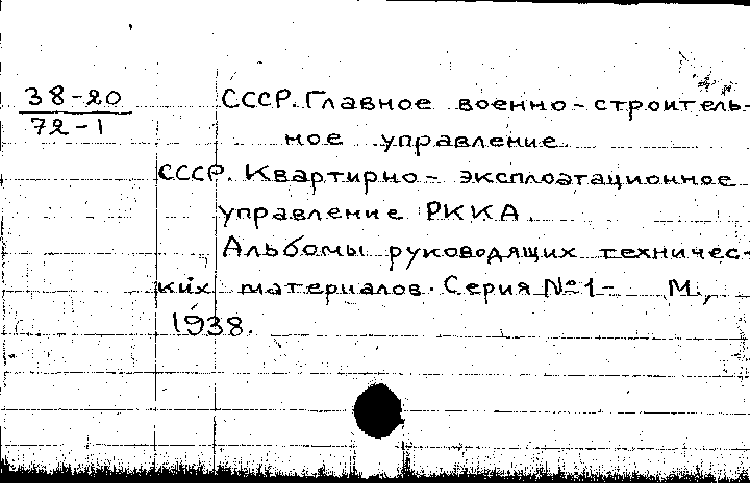 38-20
72-1
СССР. Главное военно-строитель-
ное управление
СССР. Квартирно-эксплоатационное
управление РККА
Альбомы руководящих техничес-
ких материалов. Серия №1- М.,
1938.